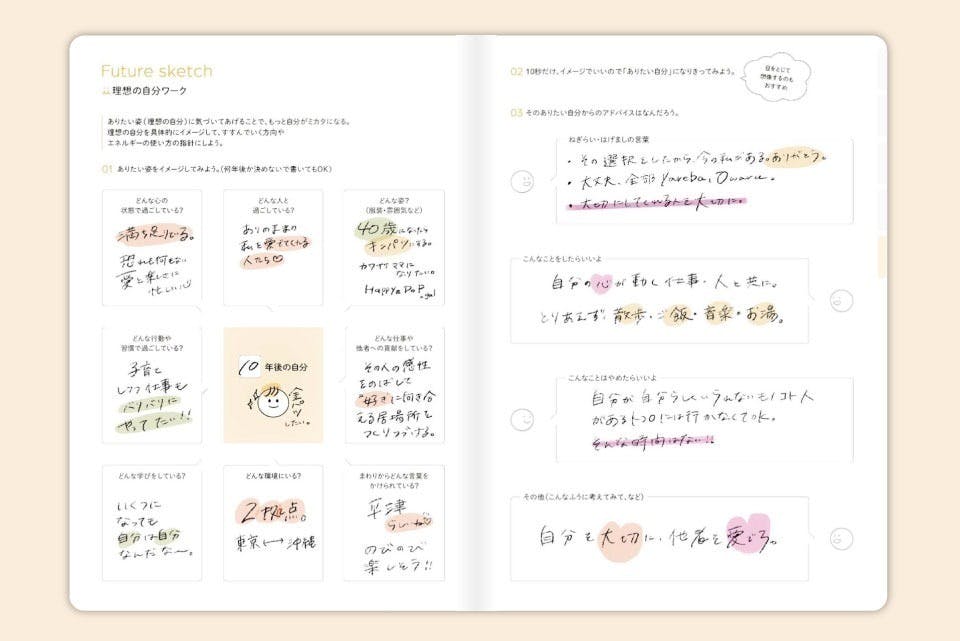 Future sketch
理想の自分ワーク
ありたい姿(理想の自分)に気づいてあげることで、もっと自分がミカタになる。
理想の自分を具体的にイメージして、すすんでいく方向や
エネルギーの使い方の指針にしよう。
01 ありたい姿をイメージしてみよう。(何年後か決めないで書いてもOK)
どんな心の
状態で過ごしている?
満ち足りてる。
恐れも何もない
愛と楽しさに
忙しい
どんな人と
過ごしている?
ありのままの
私を愛してくれてる
人たち♡
どんな姿?
(服装・雰囲気など)
40歳になったら
キンパツにする。
カワイイママに
なりたい。
Happy & POP
gal
どんな行動や
習慣で過ごしている?
子育て
しつつ仕事も
バリバリに
やってたい!!
10 年後の自分
金パツ
したい。
どんな仕事や
他者への貢献をしている?
その人の感性
をのばして
"好き"に向き合
える居場所を
つくりつづける。
どんな学びをしている?
いくつに
なっても
自分は自分
なんだなー。
どんな環境にいる?
2拠点。
東京⟷沖縄
まわりからどんな言葉を
かけられている?
草津
らしいね♡
のびのび
楽しそう!!
02 10秒だけ、イメージでいいので「ありたい自分」になりきってみよう。
目をとじて
想像するのも
おすすめ
03 そのありたい自分からのアドバイスはなんだろう。
ねぎらい・はげましの言葉
・その選択をしたから、今の私がある。ありがとう。
・大丈夫、全部 Yareba, Owaru.
・大切にしてくれる人を大切に。
こんなことをしたらいいよ
自分の心が動く仕事・人と共に。
とりあえず、散歩・ご飯・音楽・お湯。
こんなことはやめたらいいよ
自分が自分らしくいられないモノコト人
があるトコロには行かなくてOK。
そんな時間はない!!
その他(こんなふうに考えてみて、など)
自分を大切に、他者を愛そう。